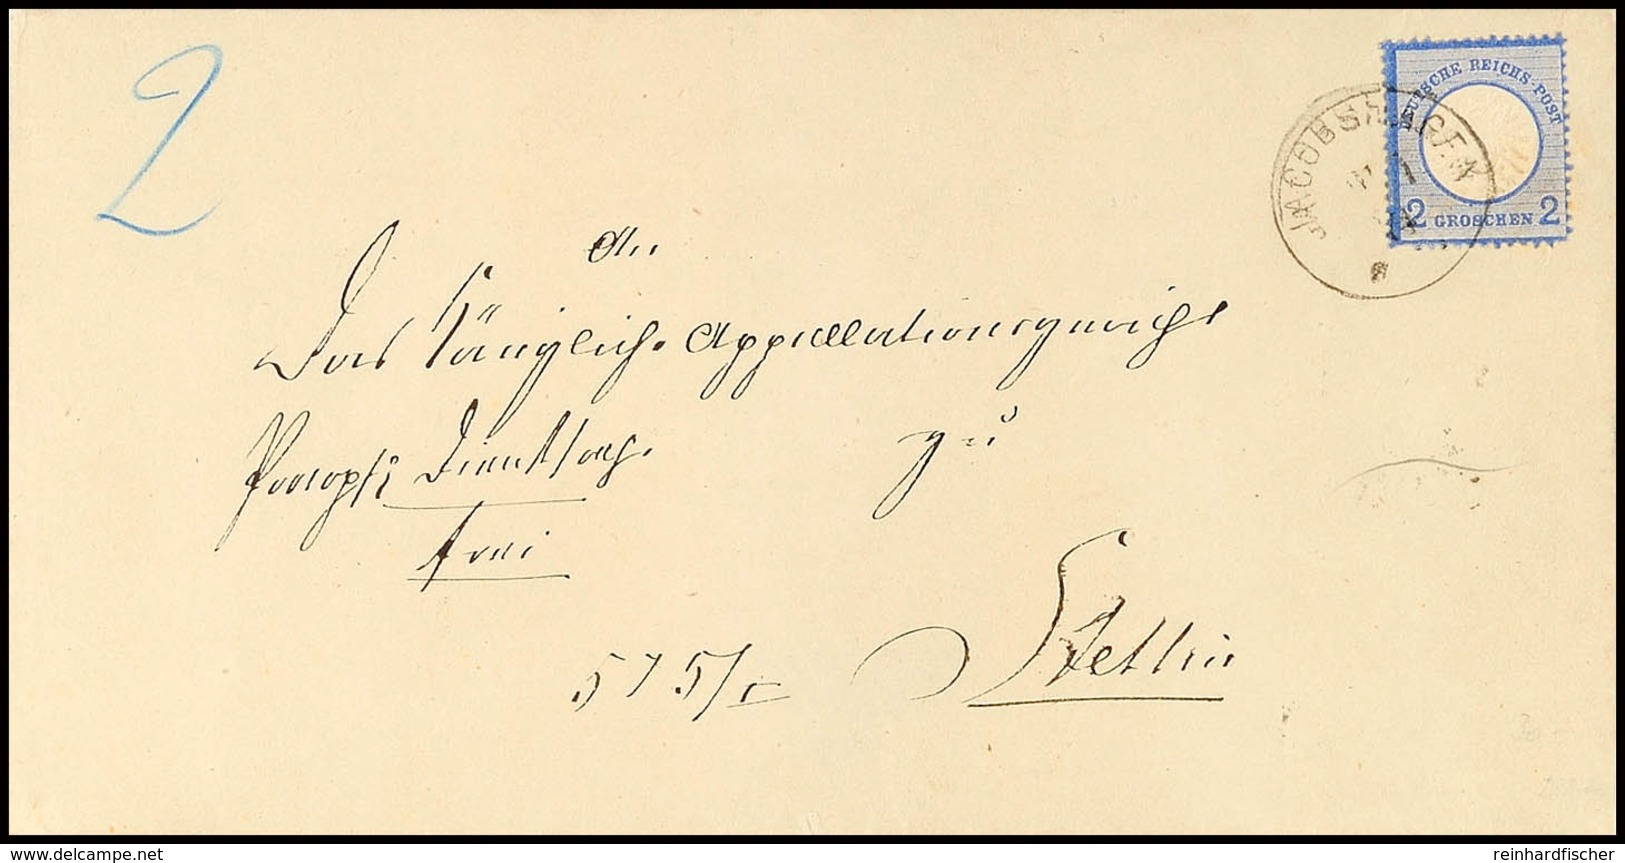 2
DEUTSCHE REICHS-POST
2 GROSCHEN 2
JACOBSHAGEN
An
Das Königlich. Appellationsgericht
Dienstsach.
zu
frei
Stettin
www.delcampe.net
reinhardfischer